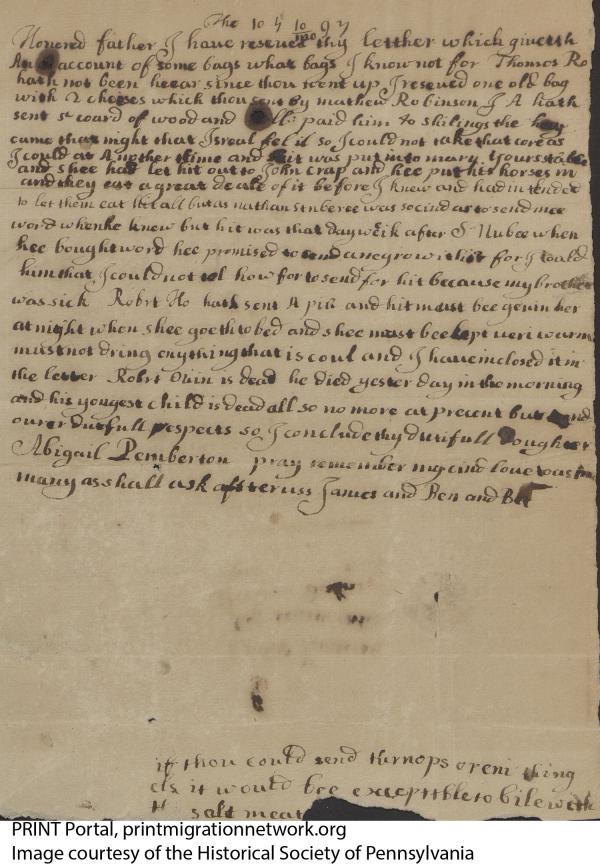 The 10 of 10 mo 97
Honored father I have reseved thy letther which giveth
An account of some bags what bags I know not for Thomos Ro
hath not been heear since thou went up I reseved one old bag
with 2 cheeses which thou sent by mathew Robinson J A hath
sent 5 coard of wood and paid him 40 shilings the hay
came that night that Isreal fel il so I could not take that core as
I could at Another thime and hit was put into mary Yours stable
and shee had let hit out to John Crap and hee put his horses in
and they eat a great deale of it before I knew and had intended
to let them eat it all but as nathan was so cind as to send mee
word when he knew but hit was that day weik after S Nubee when
hee bought word hee promised to send a negrow with it for I tould
him that I could not tel how for to send for hit because my brother
was sick Robrt Ho hath sent A pil and hit must bee gevin her
at night when shee goeth to bed and shee must bee kept veri warm
must not dring enything that is coul and I have inclosed it in
the letter Robrt Owin is dead he died yester day in the morning
and his yongest child is dead all so no more at precent but
ourer dutfull respects so I conclude thy dutifull Doughter
Abigail Pemberton pray remember my cind love to as
many as shall ask aftter uss James and Ben and
if thou could send turnops or eni thing
els it would bee exceptible to bile with
salt meat
PRINT Portal, printmigrationnetwork.org
Image courtesy of the Historical Society of Pennsylvania